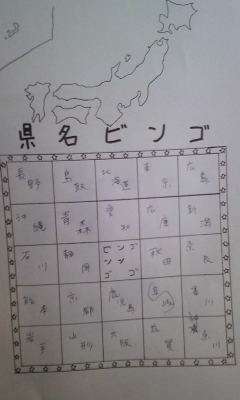 県名ビンゴ
長野 鳥取 北海道 東京 広島
沖縄 青森 愛知 兵庫 新潟
石川 静岡 ビンゴ ンン ゴ ゴ 秋田 奈良
熊本 京都 鹿児島 香川
岩手 山形 大阪 佐賀 神奈川